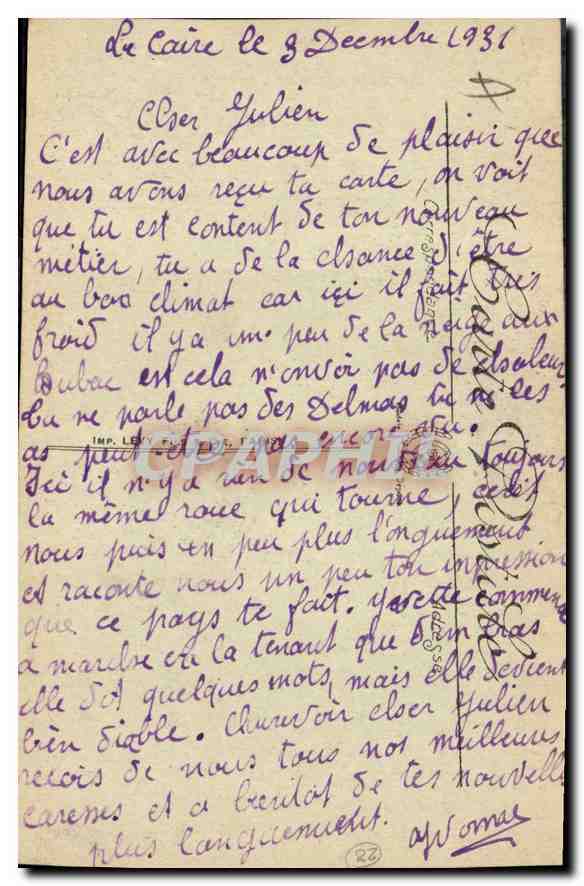 Le Caire le 3 Decembre 1931
Cher Julien
C'est avec beaucoup de plaisir que
nous avons reçu ta carte, on voit
que tu est content de ton nouveau
métier, tu a de la chance d'être
au bon climat car ici il fait très
froid il y a un peu de la neige aux
est cela n'envoir pas de chaleur
tu ne parle pas des Delmas tu ne les
as peut être pas encore vu.
Ici il n'y a rien de nouveau toujours
la même roue qui tourne, écris
nous puis un peu plus longuement
et raconte nous un peu ton impression
que ce pays te fait. Yvette commence
a marcher en la tenant que d'un bras
elle dit quelques mots, mais elle devient
bien diable. Aurevoir cher Julien
recois de nous tous nos meilleures
caresses et a bientot de tes nouvelles
plus longuement.
Carte Postale
Correspondance
Adresse
IMP. LÉVY
CPAPHIL
22